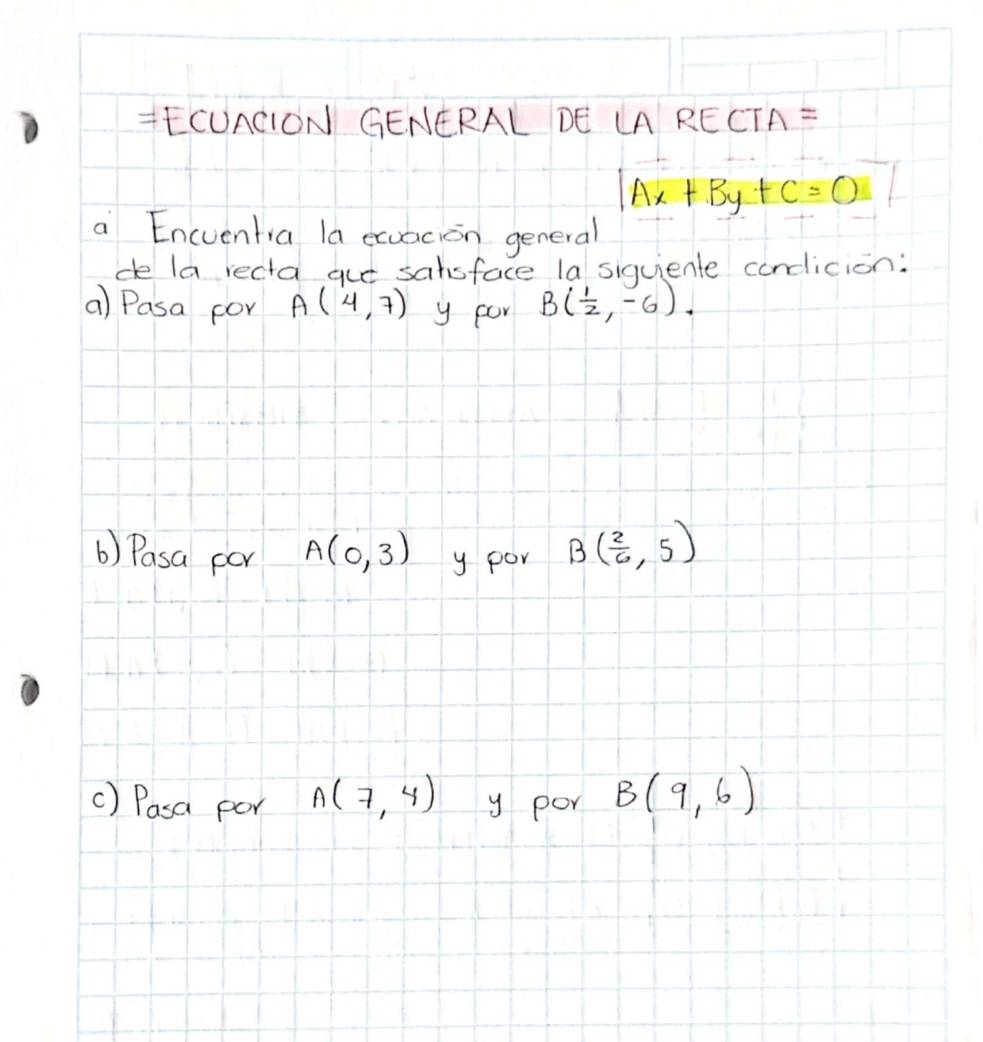 =ECUACION GENERAL DE LA RECTA=
Ax + By + C = 0
a Encuentra la ecuación general
de la recta que satisface la siguiente condición:
a) Pasa por A(4,7) y por B(1/2, -6).
b) Pasa por A(0,3) y por B(2/6, 5)
c) Pasa por A(7,4) y por B(9,6)